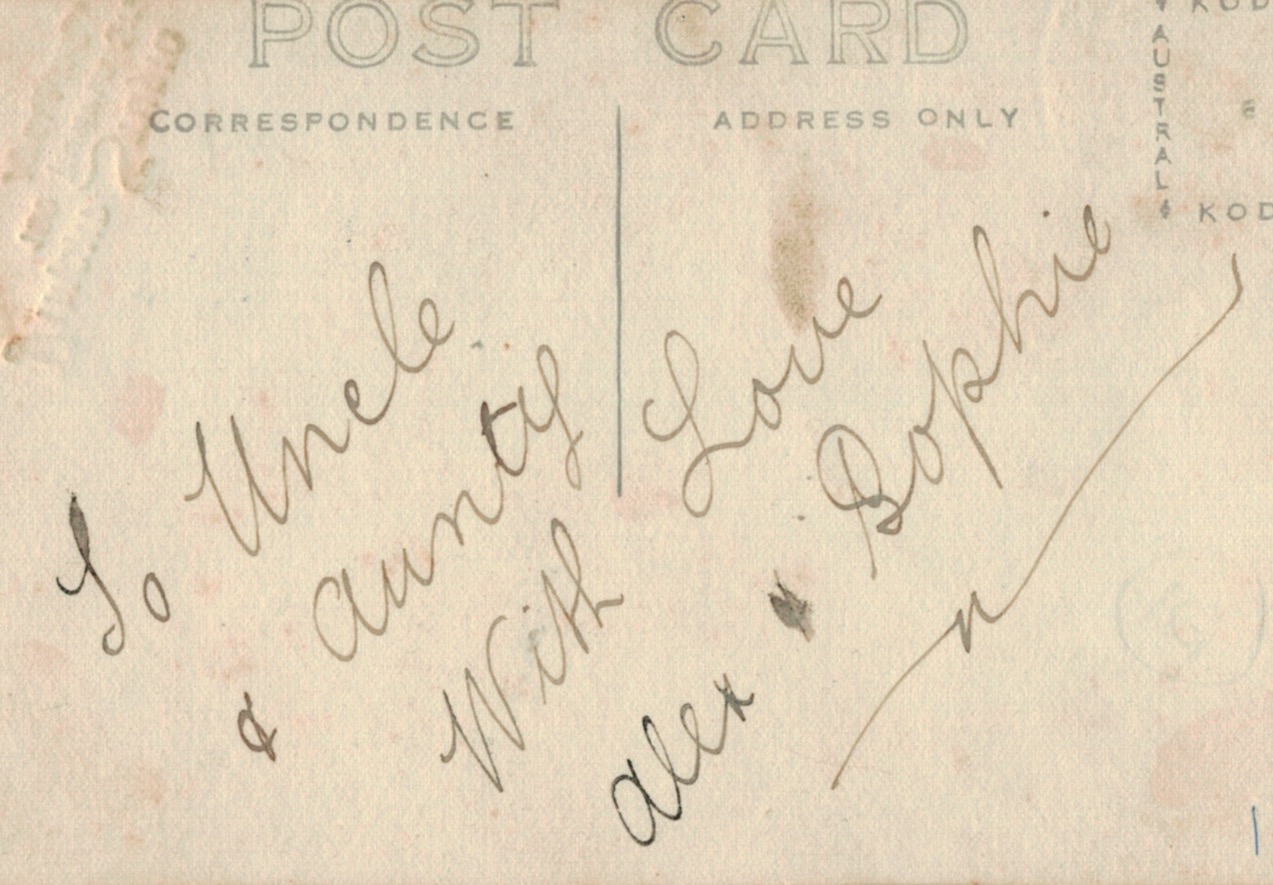 POST CARD
CORRESPONDENCE
ADDRESS ONLY
AUSTRAL
KOD
KOD
To Uncle
& aunty
With Love
alex & Sophie
(6)